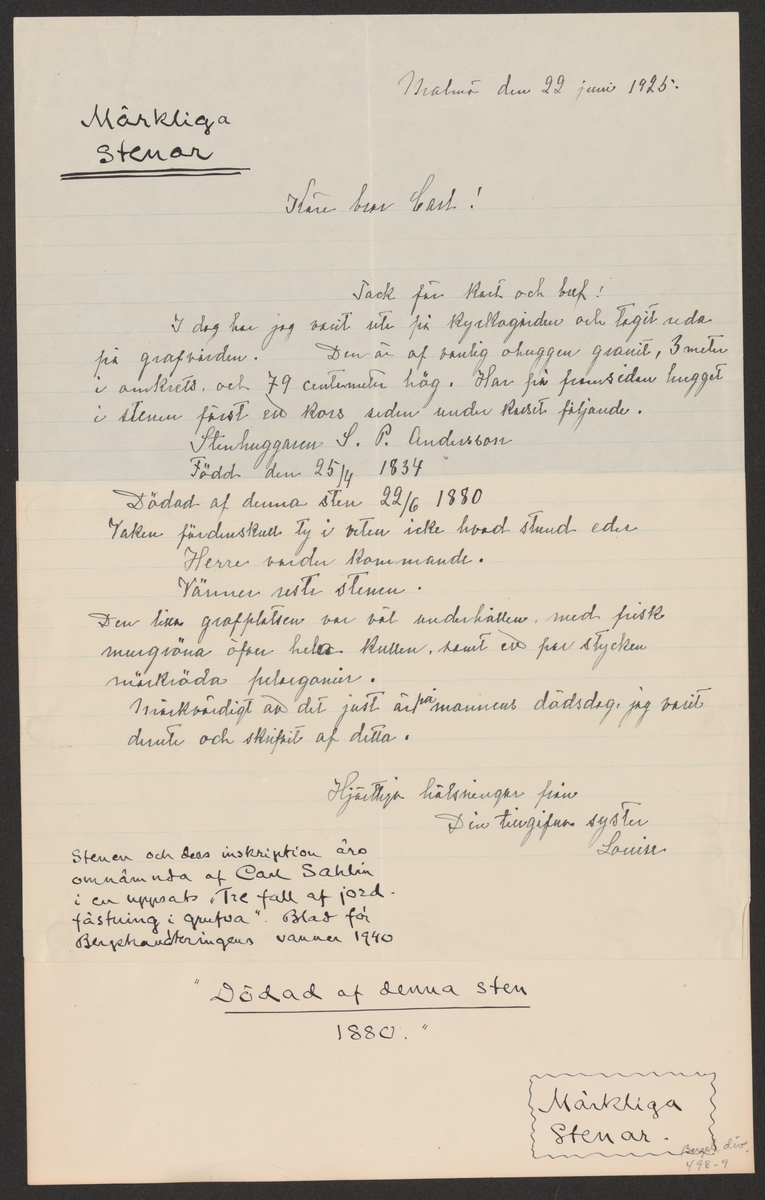 Malmö den 22 juni 1925.
Märkliga
Stenar
Käre bror Carl!
Tack för kort och bref!
I dag har jag varit ute på kyrkogården och tagit reda
på grafvården. Den är af vanlig ohuggen granit, 3 meter
i omkrets, och 79 centimeter hög. Har på framsidan hugget
i stenen först ett kors sedan under korset följande.
Stenhuggaren S. P. Andersson
Född den 25/4 1834
Dödad af denna sten 22/6 1880
Vaken fördenskull ty i veten icke hvad stund eder
Herre varder kommande.
Vänner reste stenen.
Den lilla grafplatsen var väl underhållen, med frisk
murgröna öfver hela kullen, samt ett par stycken
mörkröda pelargonier.
Märkvärdigt att det just är på mannens dödsdag, jag varit
derute och skrifvit af detta.
Hjärtliga hälsningar från
Din tillgifna syster
Louise
Stenen och dess inskription äro
omnämnda af Carl Sahlin
i en uppsats „Tre fall af jord-
fästning i grufva". Blad för
Bergshandteringens vänner 1940
"Dödad af denna sten
1880."
Märkliga
Stenar.
Bergsh. div.
498-9